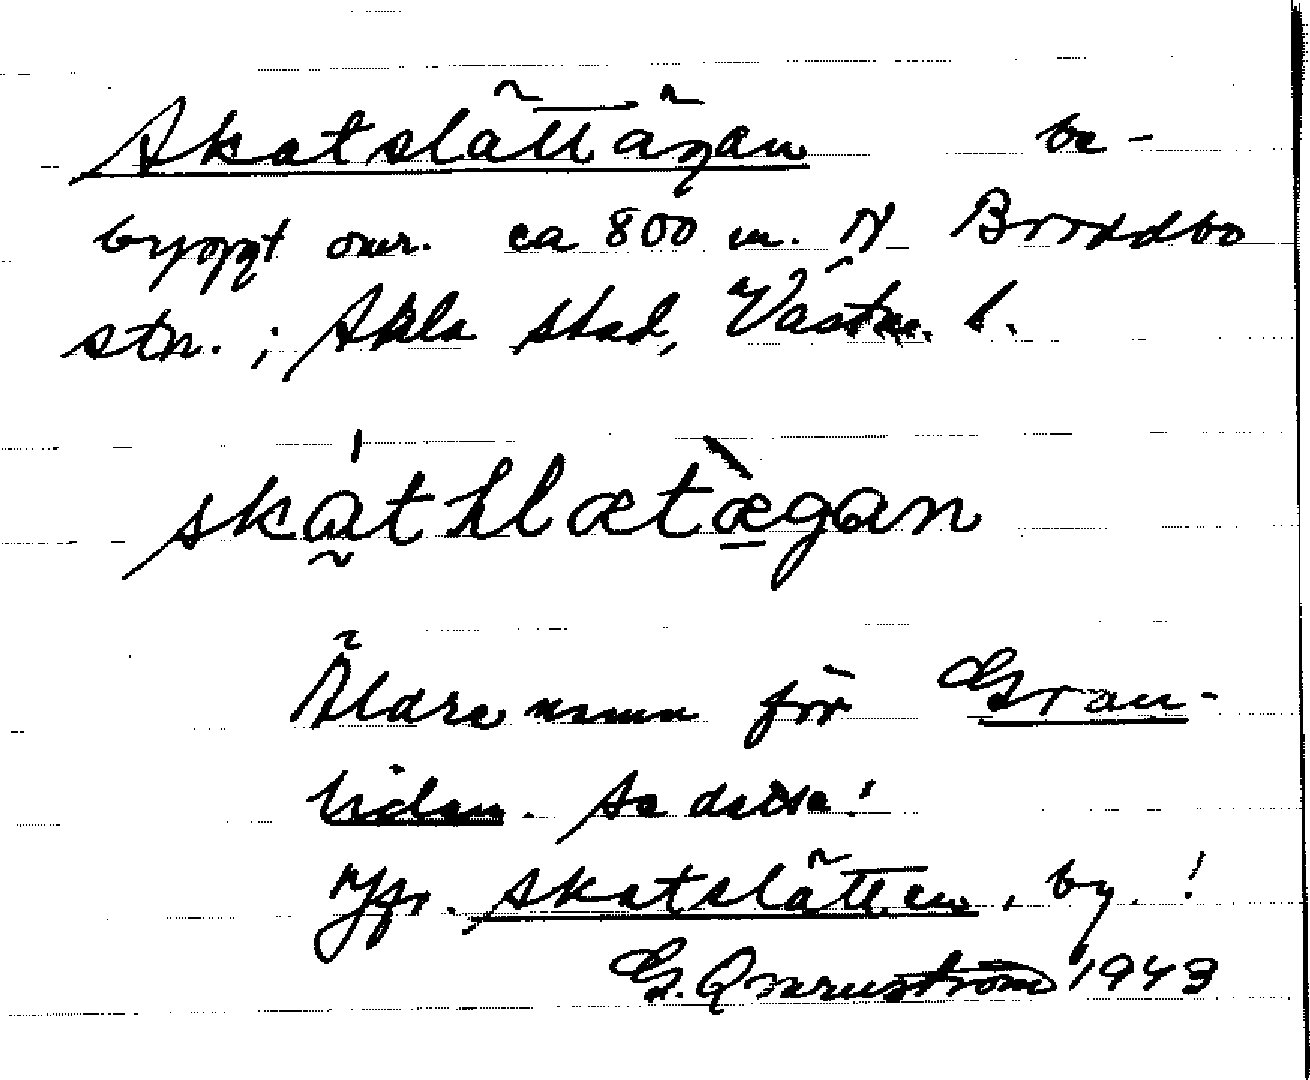 Skatslättägan be-
byggt omr. ca 800 m. N Broddbo
stn. ; Skla stad, Västm. l.
skáthlætægan
Äldre namn för Gran-
liden. Se detta!
Jfr. Skatslätten, by. !
G. Qvarnström 1943